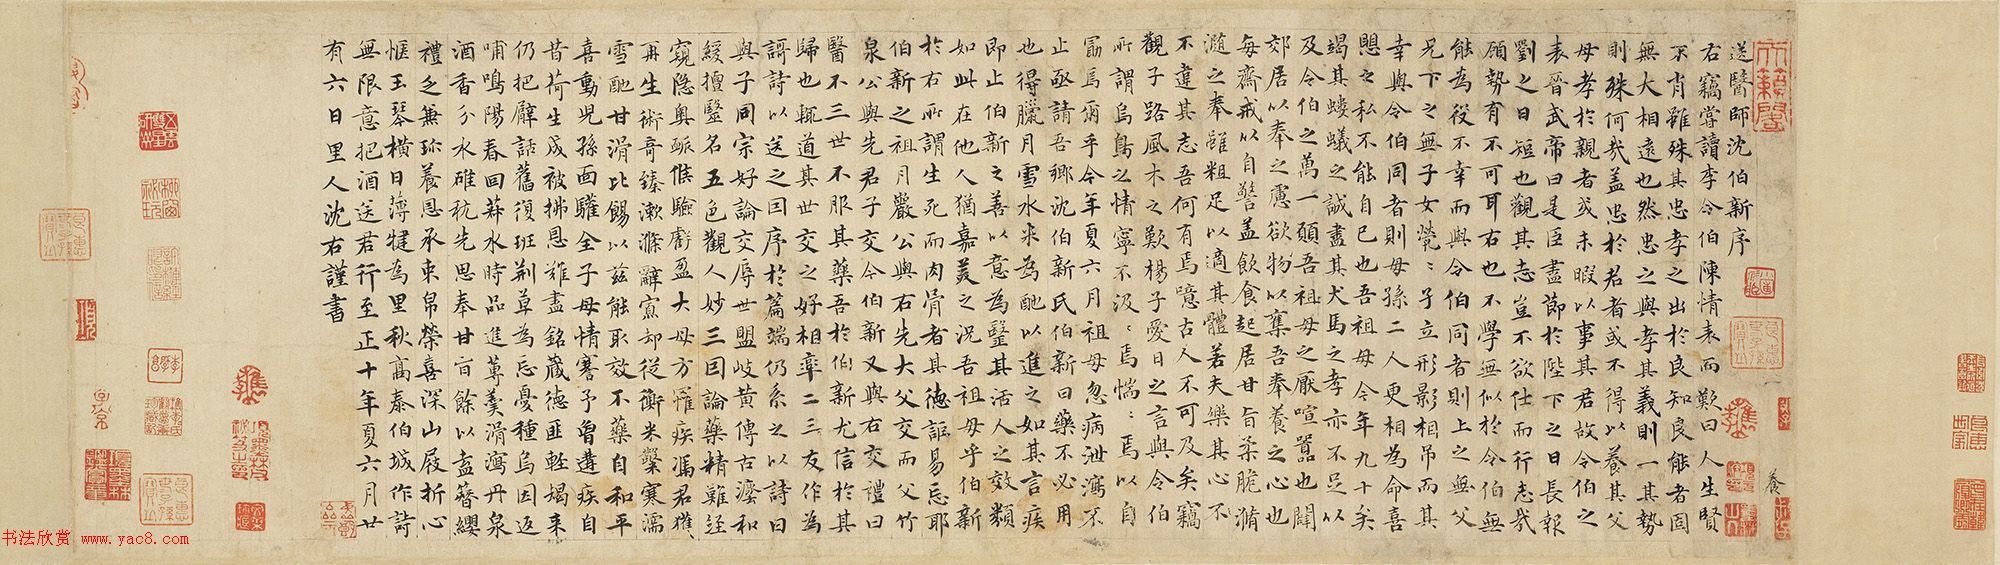 送醫師沈伯新序
右竊嘗讀李令伯陳情表而歎曰人生賢
不肖雖殊其忠孝之出於良知良能者固
無大相遠也然忠之與孝其義則一其勢
則殊何哉盖忠於君者或不得以養其父
母孝於親者或未暇以事其君故令伯之
表晉武帝曰是臣盡節於陛下之日長報
劉之日短也觀其志豈不欲仕而行志哉
顧勢有不可耳右也不學無似於令伯無
能為役不幸而與令伯同者則上之無父
兄下之無子女煢〻孑立形影相吊而其
幸與令伯同者則母孫二人更相為命喜
懼之私不能自已也吾祖母今年九十矣
竭其螻蟻之誠盡其犬馬之孝亦不足以
及令伯之萬一顧吾祖母之厭喧囂也闢
郊居以奉之慮欲物以養吾奉養之心也
每齋戒以自警盖飲食起居甘旨柔脆滫
瀡之奉雖粗足以適其體若夫樂其心不
不違其志吾何有焉噫古人不可及矣竊
觀子路風木之歎楊子愛日之言與令伯
所謂烏鳥之情寧不汲〻焉惴〻焉以自
勗焉爾乎今年夏六月祖母忽病泄瀉不
止亟請吾鄉沈伯新氏伯新曰藥不必用
也得臘月雪水米為酏以進之如其言疾
即止伯新之善以意為醫其活人之效類
如此在他人猶嘉美之況吾祖母乎伯新
於右所謂生死而肉骨者其德詎易忘耶
伯新之祖月巖公與右先大父交而父竹
泉公與先君子交今伯新又與右交禮曰
醫不三世不服其藥吾於伯新尤信於其
歸也輒道其世交之好相率二三友作為
謌詩以送之因序於篇端仍系之以詩曰
與子同宗好論交辱世盟岐黄傳古瀍和
緩擅醫名五色觀人妙三因論藥精難經
窺隐奥脈候驗虧盈大母方罹疾馮君獲
再生術奇臻漱滌辭寫却從衡米檗寒濡
雪酏甘滑比餳以兹能取效不藥自和平
喜動児孫面驩全子母情謇予魯遘疾自
昔荷生成被拂恩難盡銘蔵德匪輕朅来
仍把臂話舊復班荆草為忘憂種烏因返
哺鳴陽春回莽水時品進蓴羹滑瀉丹泉
酒香分水碓秔先思奉甘旨餘以盍簪纓
禮乏兼珎養恩承束帛榮喜深山屐折心
愜玉琴橫日薄犍為里秋高泰伯城作詩
無限意把酒送君行至正十年夏六月廿
有六日里人沈右謹書
天籟閣
養
子京
书法欣赏 www.yac8.com